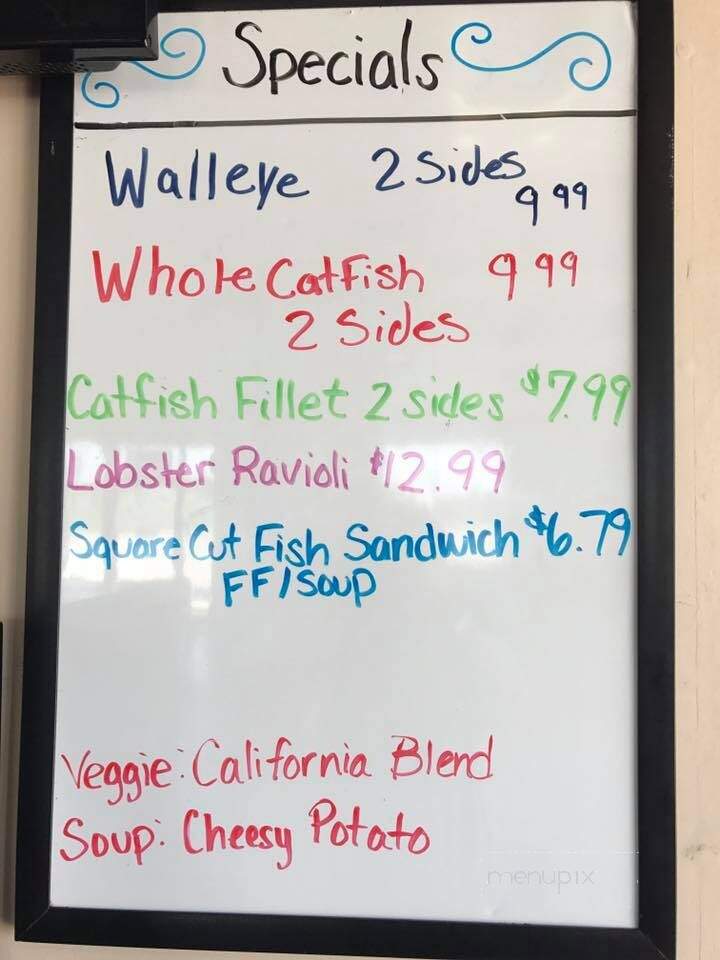 Specials
Walleye 2 Sides 9 99
Whole Catfish 9 99
2 Sides
Catfish Fillet 2 sides $7.99
Lobster Ravioli $12.99
Square Cut Fish Sandwich $6.79
FF/Soup
Veggie: California Blend
Soup: Cheesy Potato
menupix